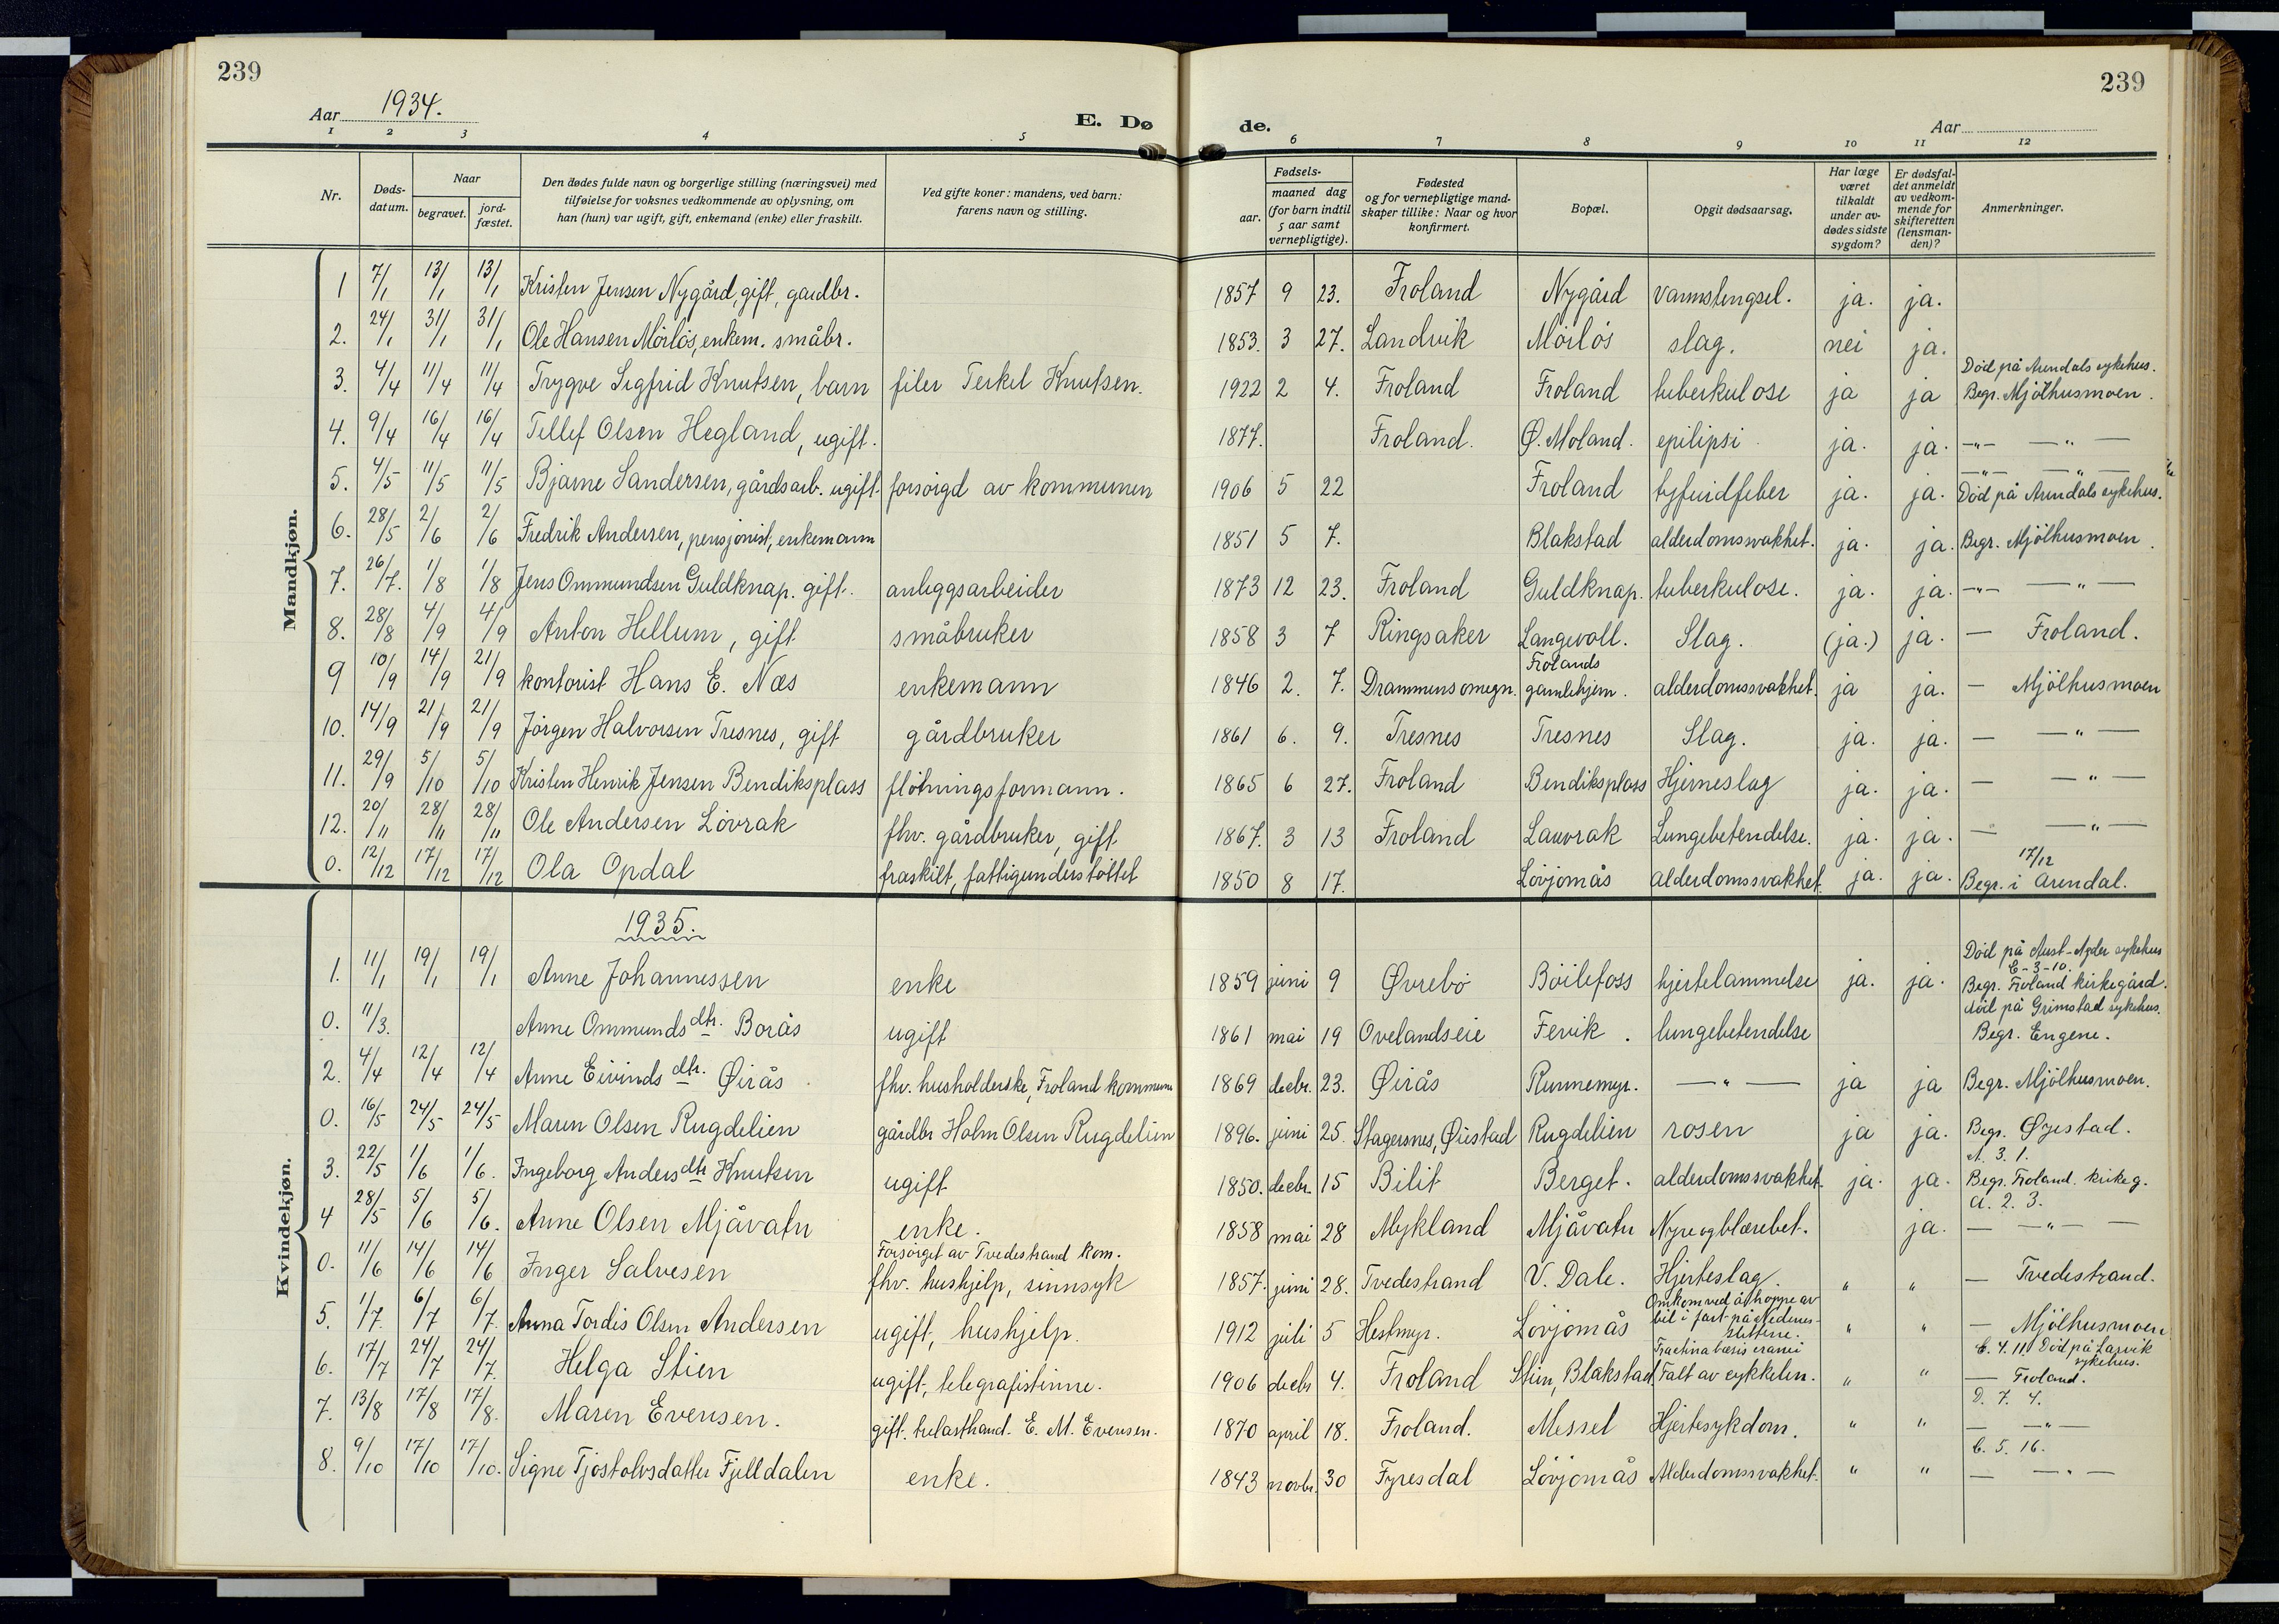 239
239
Aar 1934.
E. Døde.
Aar
1 2 3 4 5 6 7 8 9 10 11 12
Nr.
Døds-datum.
Naar
begravet.
jord-fæstet.
Den dødes fulde navn og borgerlige stilling (næringsvei) med tilføielse for voksnes vedkommende av oplysning, om han (hun) var ugift, gift, enkemand (enke) eller fraskilt.
Ved gifte koner: mandens, ved barn: farens navn og stilling.
Fødsels-
aar.
maaned dag
(for barn indtil 5 aar samt vernepligtige).
Fødested og for vernepligtige mandskaper tillike: Naar og hvor konfirmert.
Bopæl.
Opgit dødsaarsag.
Har læge været tilkaldt under avdødes sidste sygdom?
Er dødsfaldet anmeldt av vedkommende for skifteretten (lensmanden)?
Anmerkninger.
Mandkjøn.
1 7/1 13/1 13/1 Kristen Jensen Nygård, gift, gardbr. 1857 9 23. Froland Nygård vannstengsel. ja. ja.
2. 24/1 31/1 31/1 Ole Hansen Mörlös, enkem. småbr. 1853. 3 27. Landvik Mörlös slag. nei ja.
3. 4/4 11/4 11/4 Trygve Sigfrid Knutsen, barn filer Terkel Knutsen. 1922 2 4. Froland Froland tuberkulose ja ja Död på Arendals sykehus. Begr. Mjölhusmoen.
4. 9/4 16/4 16/4 Tellef Olsen Hegland, ugift. 1877. Froland. Ø. Moland. epilipsi ja. ja. -"- — " —
5. 4/5 11/5 11/5 Bjarne Sandersen, gårdsarb. ugift. forsörgd av kommunen 1906 5 22 Froland tyfuidfeber ja. ja. -"- — " — Död på Arendals sykehus.
6. 28/5 2/6 2/6 Fredrik Andersen, pensjonist, enkemann 1851 5 7. Blakstad alderdomssvakhet. ja. ja. Begr. Mjölhusmoen.
7. 26/7. 1/8 1/8 Jens Ommundsen Guldknap. gift. anleggsarbeider 1873 12 23. Froland Guldknap. tuberkulose. ja. ja. -"- — " —
8. 28/8 4/9 4/9 Anton Hellum, gift småbruker 1858 3 7 Ringsaker Langevoll. Slag. (ja.) ja. — Froland.
9 10/9 14/9 21/9 kontorist Hans E. Næs enkemann 1846 2. 7. Drammens omegn. Frolands gamlehjem. alderdomssvakhet. ja ja. — Mjölhusmoen
10. 14/9 21/9 21/9 Jörgen Halvorsen Tresnes, gift gårdbruker 1861 6. 9. Tresnes Tresnes Slag. ja. ja. — — " —
11. 29/9 5/10 5/10 Kristen Henrik Jensen Bendiksplass flötningsformann. 1865 6 27. Froland Bendiksplass Hjerneslag ja. ja. — — " —
12. 20/11 28/11 28/11 Ole Andersen Lövrak fhv. gårdbruker, gift 1867. 3 13 Froland Lauvrak Lungebetendelse. ja. ja. — — " —
0. 12/12 17/12 17/12 Ola Opdal fraskilt, fattigunderstöttet 1850 8 17. Lövjomås alderdomssvakhet. ja. ja. 17/12 Begr. i Arendal.
1935.
Kvindekjøn.
1. 11/1 19/1 19/1 Anne Johannessen enke 1859 juni 9 Øvrebö Böilefoss hjertelammelse ja. ja. Död på Aust-Agder sykehus E-3-10. Begr. Froland kirkegård.
0. 11/3. Anne Ommundsdtr. Borås ugift 1861 mai 19 Ovelandseie Fevik. lungebetendelse död på Grimstad sykehus. Begr. Engene.
2. 4/4 12/4 12/4 Anne Eivindsdtr. Øirås fhv. husholderske, Froland kommune 1869 decbr. 23. Øirås Runnemyr. — " — ja ja Begr. Mjölhusmoen.
0. 16/5 24/5 24/5 Maren Olsen Rugdelien gårdbr Holm Olsen Rugdelien 1896. juni 25. Stagersnes, Øiestad Rugdelien rosen ja ja. Begr. Øyestad.
3. 22/5 1/6 1/6. Ingeborg Andersdtr Knutsen ugift 1850. decbr. 15 Bilit Berget. alderdomssvakhet. ja. ja. A. 3. 1. Begr. Froland. kirkeg.
4 28/5 5/6 5/6. Anne Olsen Mjåvatn enke. 1858 mai 28 Mykland Mjåvatn Nyreogblærebet. ja. A. 2. 3. — — " — —
0. 11/6 14/6 14/6 Inger Salvesen Forsörget av Tvedestrand kom. fhv. hushjelp, sinnsyk 1857. juni 28. Tvedestrand V. Dale. Hjerteslag. " " — Tvedestrand.
5. 1/7. 6/7 6/7. Anna Tordis Olsen Andersen ugift, hushjelp. 1912 juli 5 Hestmyr. Lövjomås Omkom ved å hoppe av bil i fart på Nedenes-slettene. " " — Mjölhusmoen
6. 17/7 24/7 24/7. Helga Stien ugift, telegrafistinne. 1906 decbr 4. Froland Stien, Blakstad Fractina basis cranii Falt av sykkelen. " " C. 4. 11. Död på Larvik sykehus. — Froland.
7. 13/8 17/8 17/8. Maren Evensen. gift. trelasthand. E. M. Evensen. 1870 april 18. Froland. Messel Hjertesykdom. " " D. 7. 4. — — " —
8. 9/10 17/10 17/10. Signe Tjostolvsdatter Fjelldalen enke. 1843 novbr. 30 Fyresdal Lövjomås Alderdomssvakhet. " " C. 5. 16. — — " —